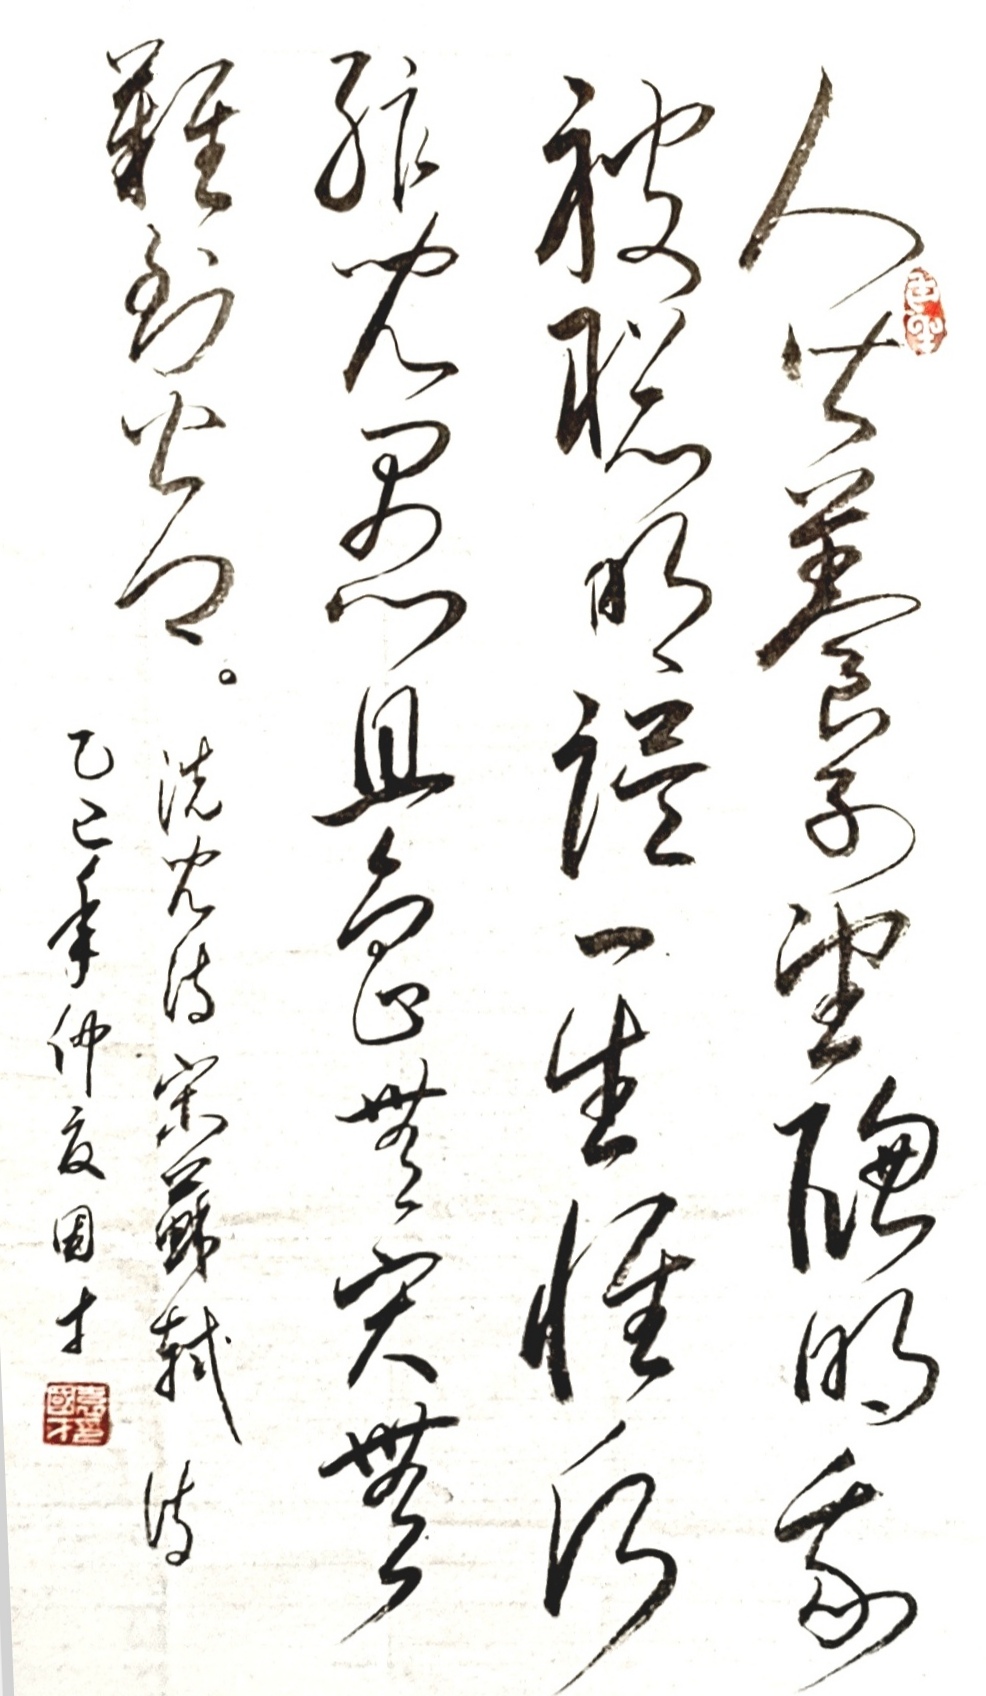 人皆養子望聰明我
被聰明誤一生惟願
孩兒愚且魯無灾無
難到公卿。
洗兒詩 宋蘇軾 詩
乙巳年仲夏国才